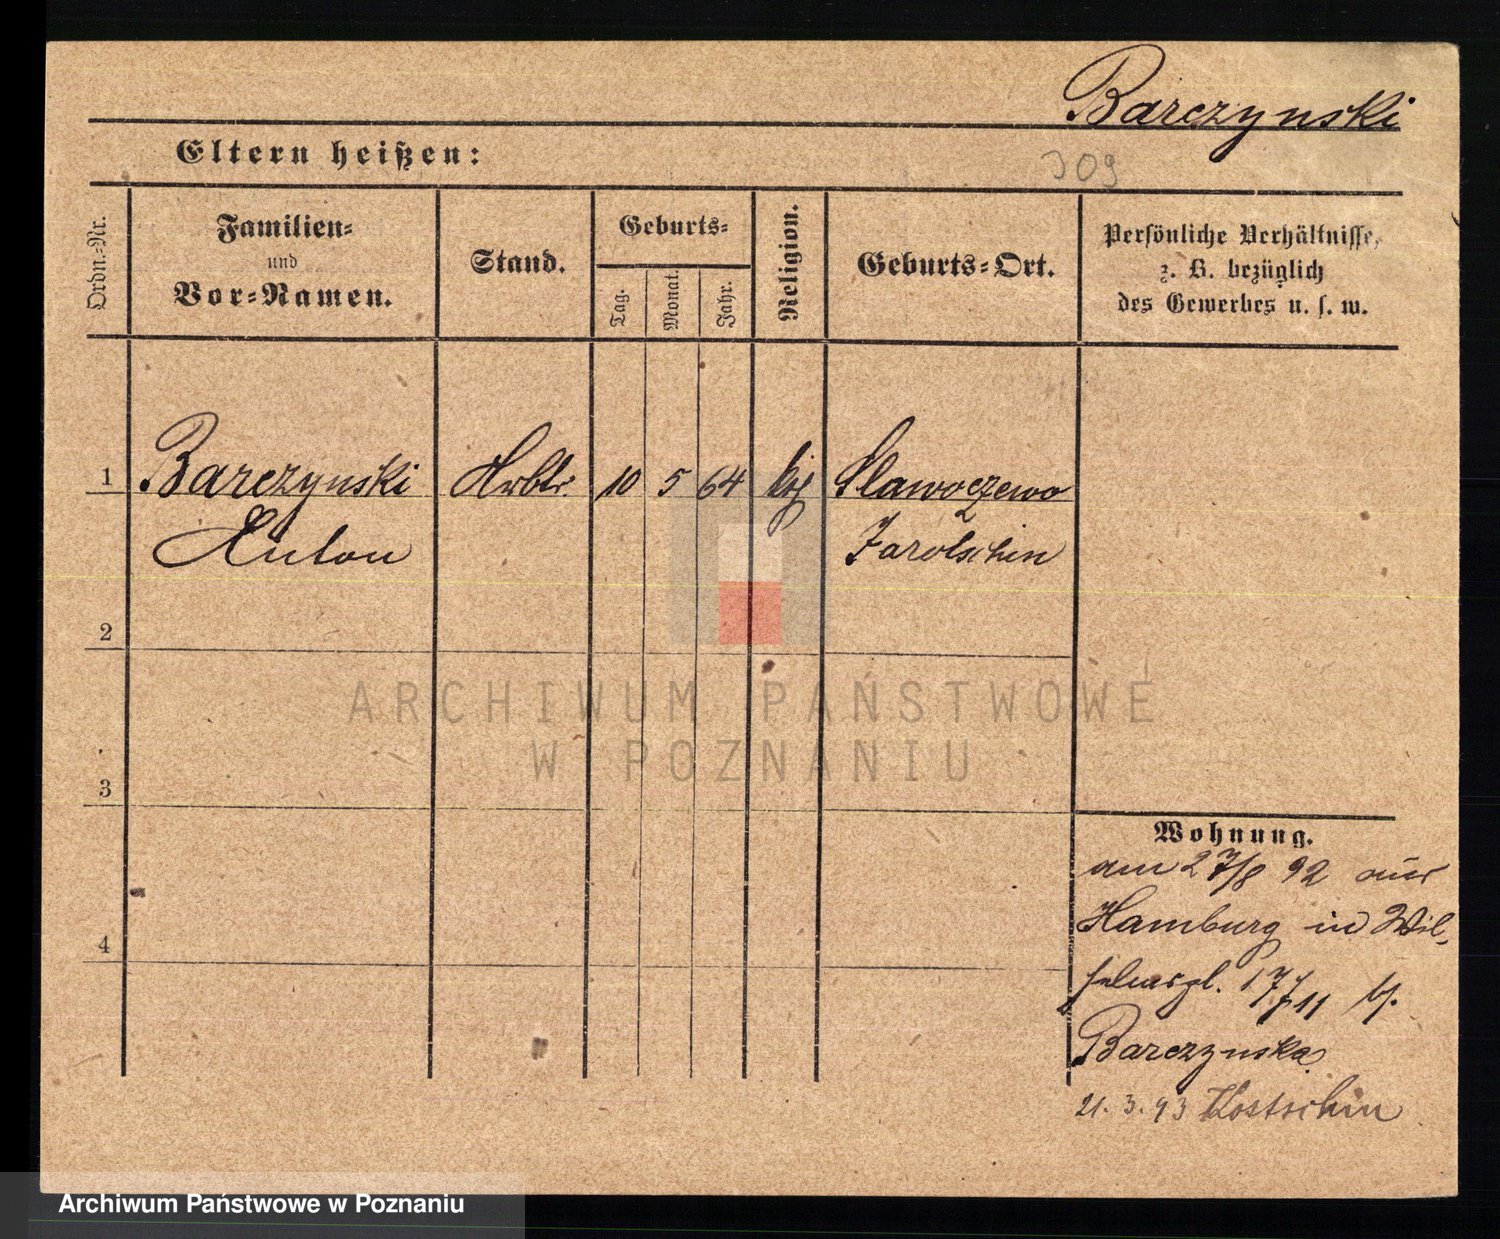 Barczynski
Eltern heißen:
309
Ordn.-Nr.
Familien-
und
Vor-Namen.
Stand.
Geburts-
Tag.
Monat.
Jahr.
Religion.
Geburts-Ort.
Persönliche Verhältnisse,
z. B. bezüglich
des Gewerbes u. s. w.
1 Barczynski Arbtr. 10 5 64 Slawoczewo
Anton Jarotschin
2
3
4
Wohnung.
am 27/8 92 aus
Hamburg in Wil-
17/11 bj.
Barczynska
21. 3. 93 Kostschin
ARCHIWUM PAŃSTWOWE
W POZNANIU
Archiwum Państwowe w Poznaniu